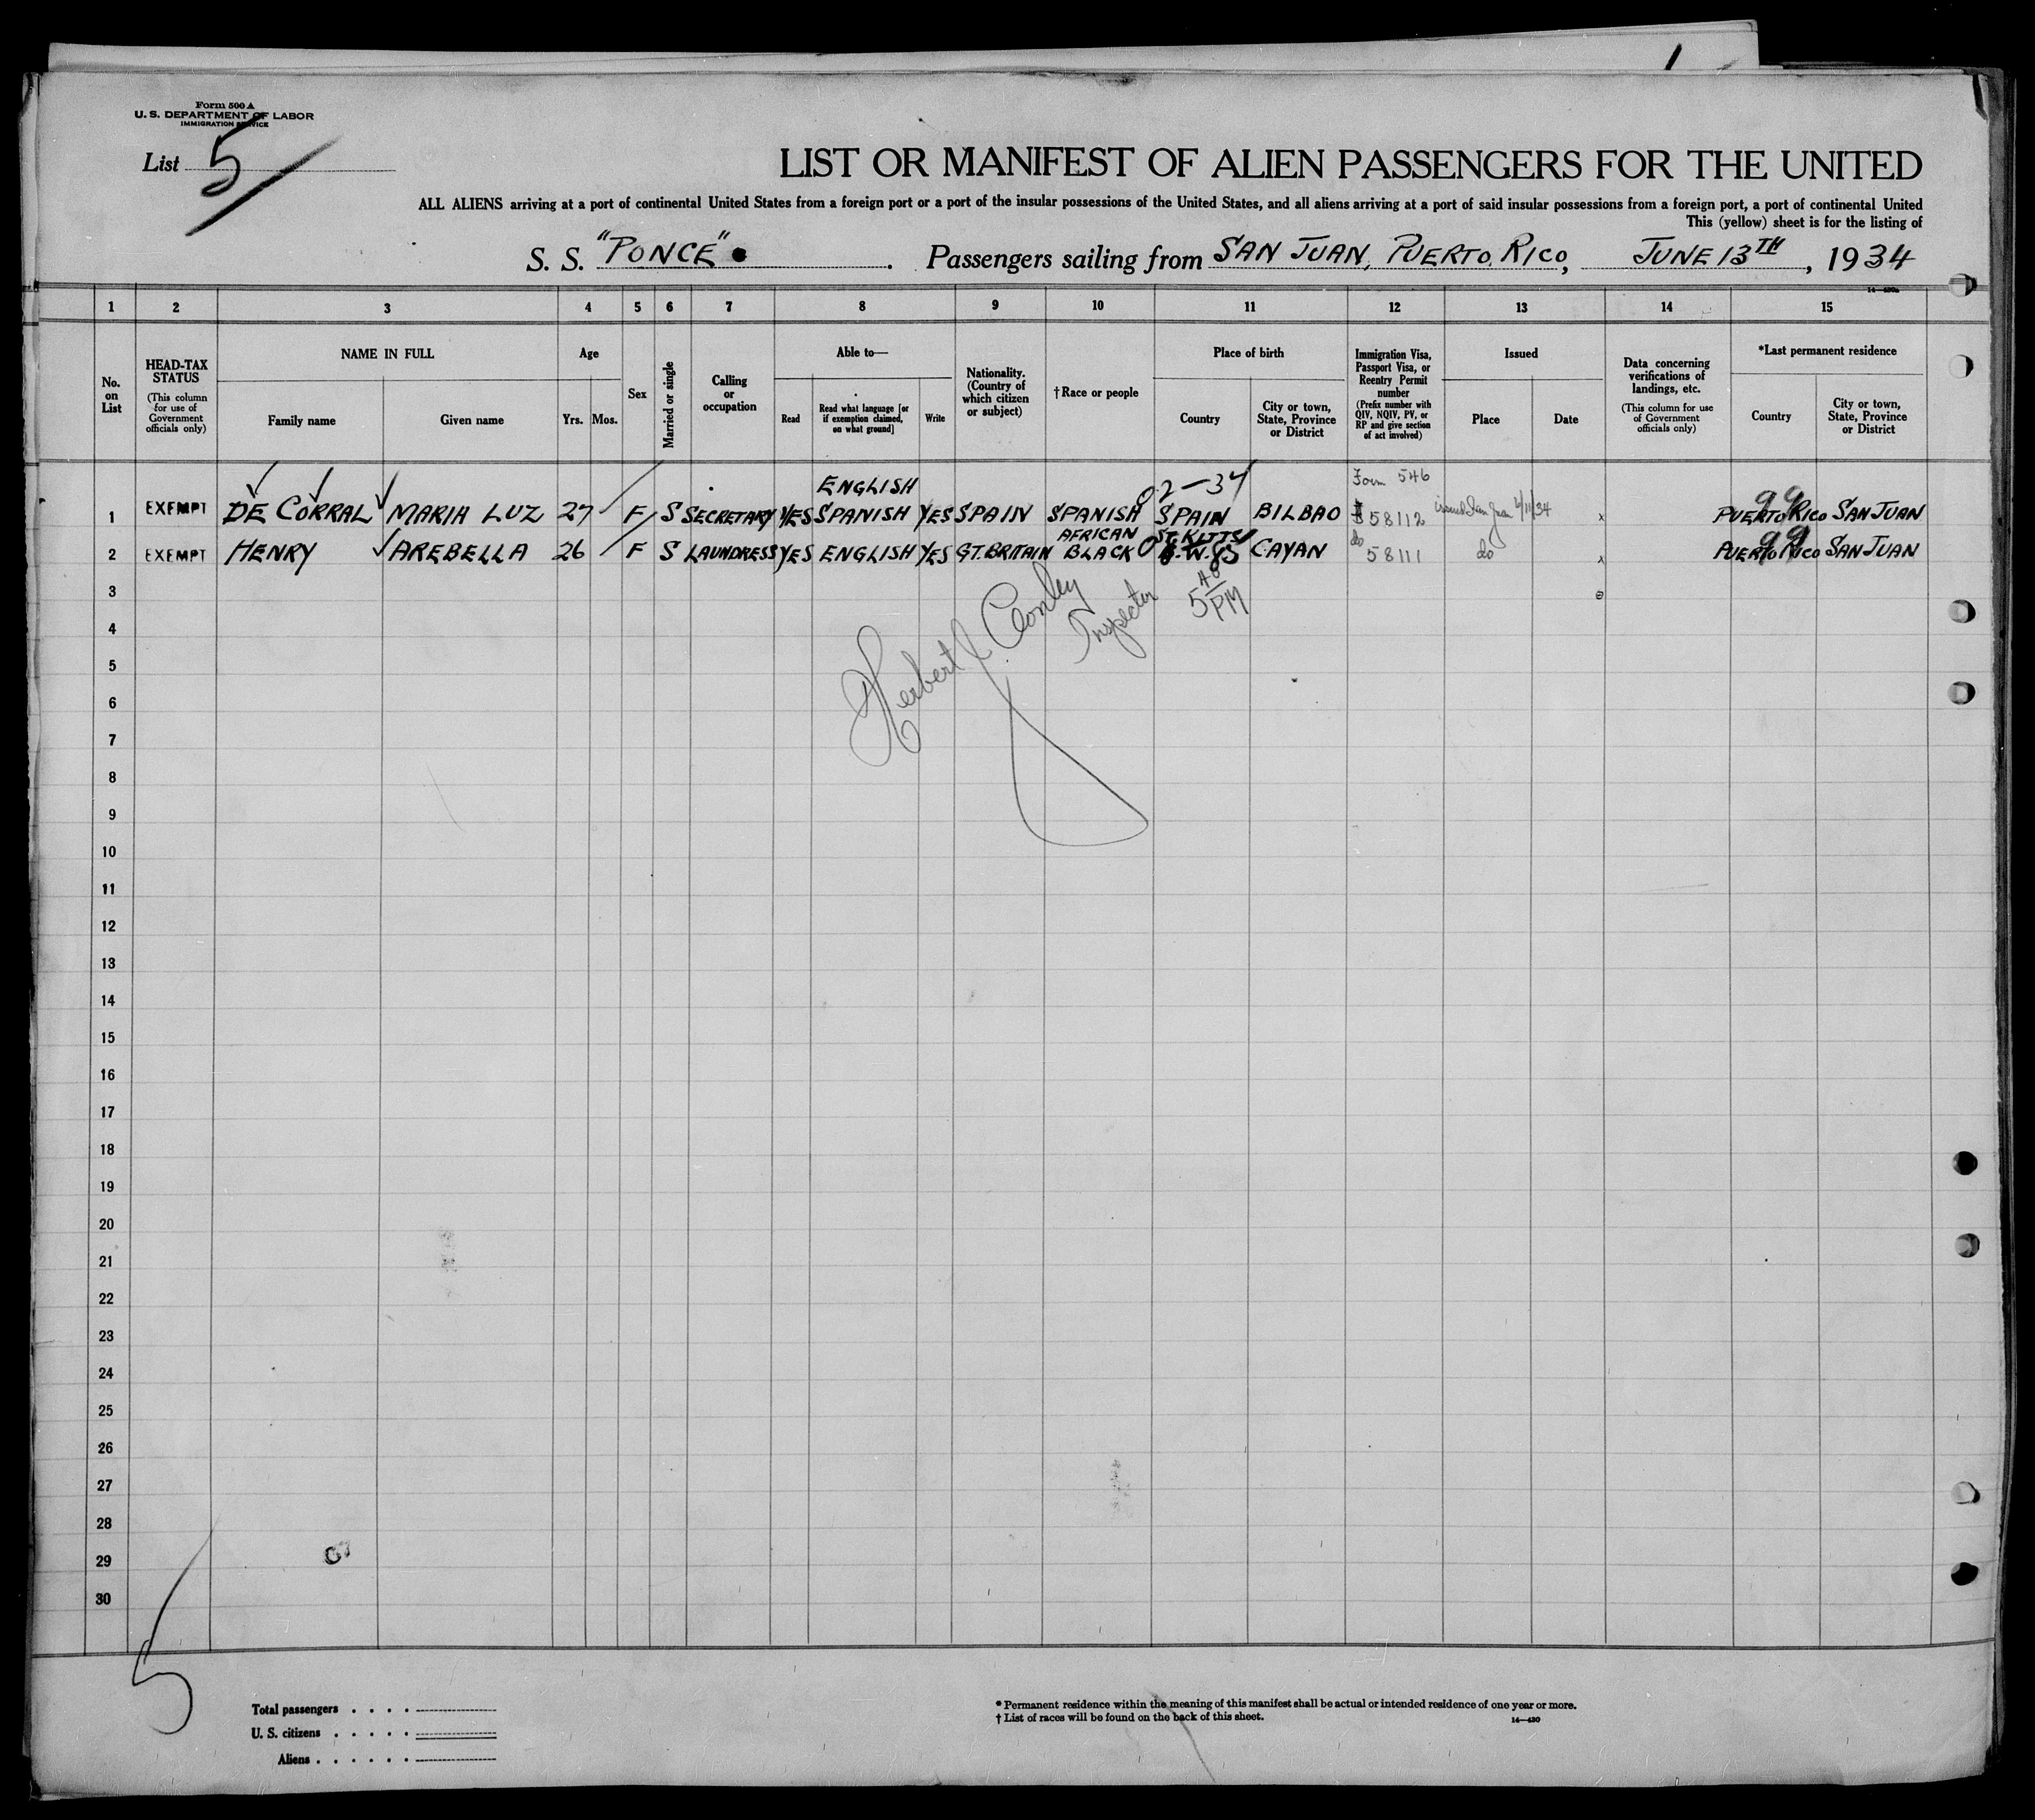 Form 500 A
U. S. DEPARTMENT OF LABOR
IMMIGRATION SERVICE
List 5
LIST OR MANIFEST OF ALIEN PASSENGERS FOR THE UNITED
ALL ALIENS arriving at a port of continental United States from a foreign port or a port of the insular possessions of the United States, and all aliens arriving at a port of said insular possessions from a foreign port, a port of continental United
This (yellow) sheet is for the listing of
S. S. "PONCE" . Passengers sailing from SAN JUAN, PUERTO RICO, JUNE 13TH, 1934
1 2 3 4 5 6 7 8 9 10 11 12 13 14 15
No. on List
HEAD-TAX STATUS
(This column for use of Government officials only)
NAME IN FULL
Family name Given name
Age
Yrs. Mos.
Sex
Married or single
Calling or occupation
Able to—
Read
Read what language [or if exemption claimed, on what ground]
Write
Nationality. (Country of which citizen or subject)
† Race or people
Place of birth
Country
City or town, State, Province or District
Immigration Visa, Passport Visa, or Reentry Permit number
(Prefix number with QIV, NQIV, PV, or RP and give section of act involved)
Issued
Place Date
Data concerning verifications of landings, etc.
(This column for use of Government officials only)
*Last permanent residence
Country
City or town, State, Province or District
ENGLISH 02-34 Form 546
1 EXEMPT DE CORRAL MARIA LUZ 27 F S SECRETARY YES SPANISH YES SPAIN SPANISH SPAIN BILBAO 58112 issued San Juan 4/11/34 99 PUERTO RICO SAN JUAN
AFRICAN ST. KITTS do
2 EXEMPT HENRY AREBELLA 26 F S LAUNDRESS YES ENGLISH YES GT. BRITAIN BLACK B.W.I. CAYAN 58111 do 99 PUERTO RICO SAN JUAN
3
4
5
6
7
8
9
10
11
12
13
14
15
16
17
18
19
20
21
22
23
24
25
26
27
28
29
30
Herbert J. Conley
Inspector
5 40 PM
5
Total passengers . . . .
U. S. citizens . . . . .
Aliens . . . . . .
* Permanent residence within the meaning of this manifest shall be actual or intended residence of one year or more.
† List of races will be found on the back of this sheet.
14—430